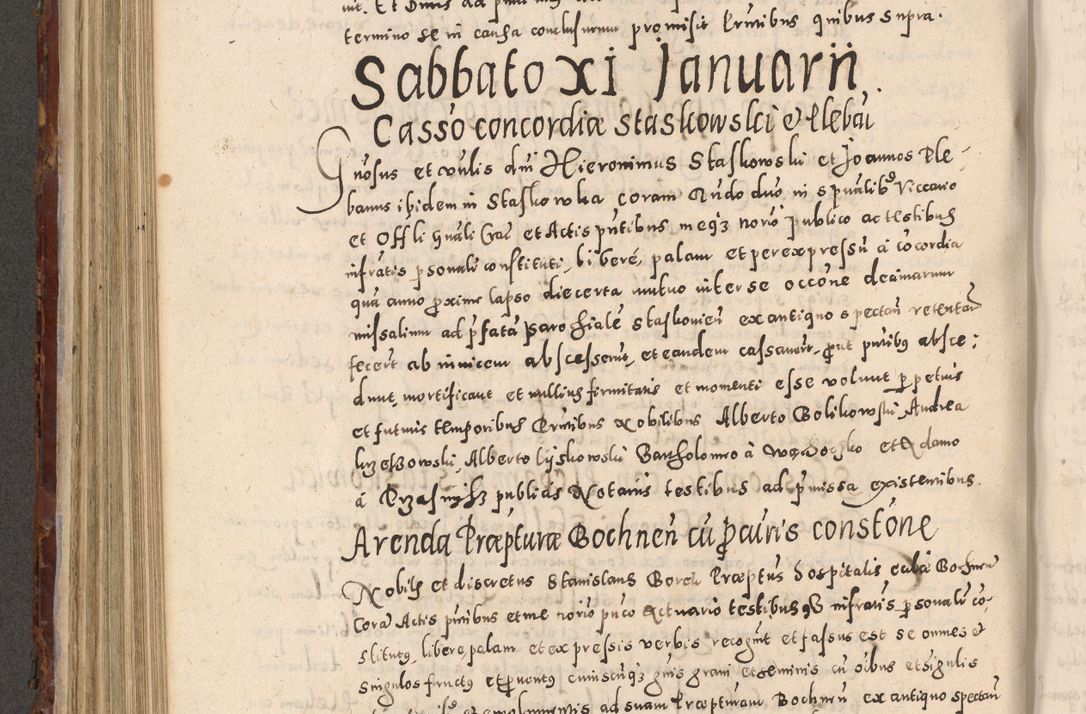 termino se in causa conclusurum promisit Prntibus quibus supra.
Sabbato XI Januarii.
Casso concordiæ Staskowski & Plebāi
Gnosus et vnlis dni Hieronimus Staskowski et Joannes Ple-
banus ibidem in Staskowka coram Rndo dno in spualib9 Viccario
et Offli Gnāli Crac et Actis pntibus meq3 norio publico ac testibus
infratis psonalr constituti, libere, palam et per expressū a cōcordia
qua anno proxime lapso die certa mutuo inter se occōne decimarum
missalium ad pfatā parochialē Staskovien ex antiquo spectan retentar
fecert ab invicem abscesserunt, et eandem cassavert, prout pntibus absce:
dunt, mortificant et nullius firmitatis et momenti esse volunt perpetuis
et futuris temporibus Prntibus Nobilibus Alberto Bolikowski, Andrea
Alberto Lyskowski Bartholomeo à et Adamo
à publicis Notariis testibus ad pmissa existentibus.
Arenda Præpturæ Bochnen cū pcuris constōne
Nobilis et discretus Stanislaus Borek Præptus Hospitalis ecclæ Bochnen
Corā Actis pntibus et me norio puco Actuario testibusq3 infratis psonalr cō-
stitutus, libere, palam et expressis verbis recognt et fassus est se omnes et
singulos fructus et pventus cuiuscuiq3 gnis grani et seminis cū oibus et sigulis
emolumentis ad suam Præpturam Bochnen ex antiquo spectan